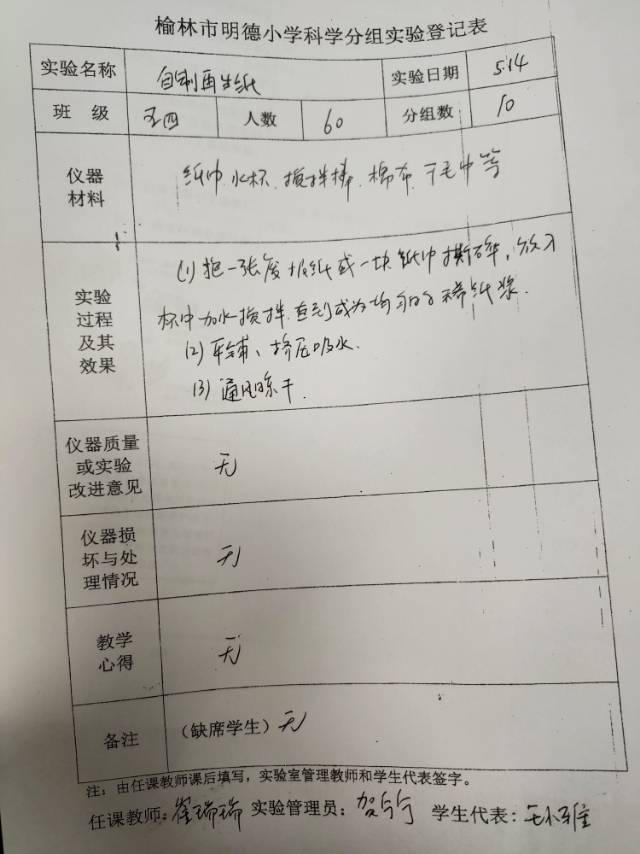 榆林市明德小学科学分组实验登记表
实验名称 自制再生纸 实验日期 5.14
班 级 五四 人数 60 分组数 10
仪器材料 纸巾.水杯.搅拌棒.棉布.干毛巾等
实验
过程
及其
效果
(1)把一张废报纸或一块纸巾撕碎,放入
杯中加水搅拌.直到成为均匀的稀纸浆.
(2)平铺、挤压吸水.
(3)通风晾干.
仪器质量
或实验
改进意见
无
仪器损
坏与处
理情况
无
教学
心得
无
备注 (缺席学生)无
注:由任课教师课后填写,实验室管理教师和学生代表签字。
任课教师:崔瑞瑞 实验管理员:贺 学生代表: